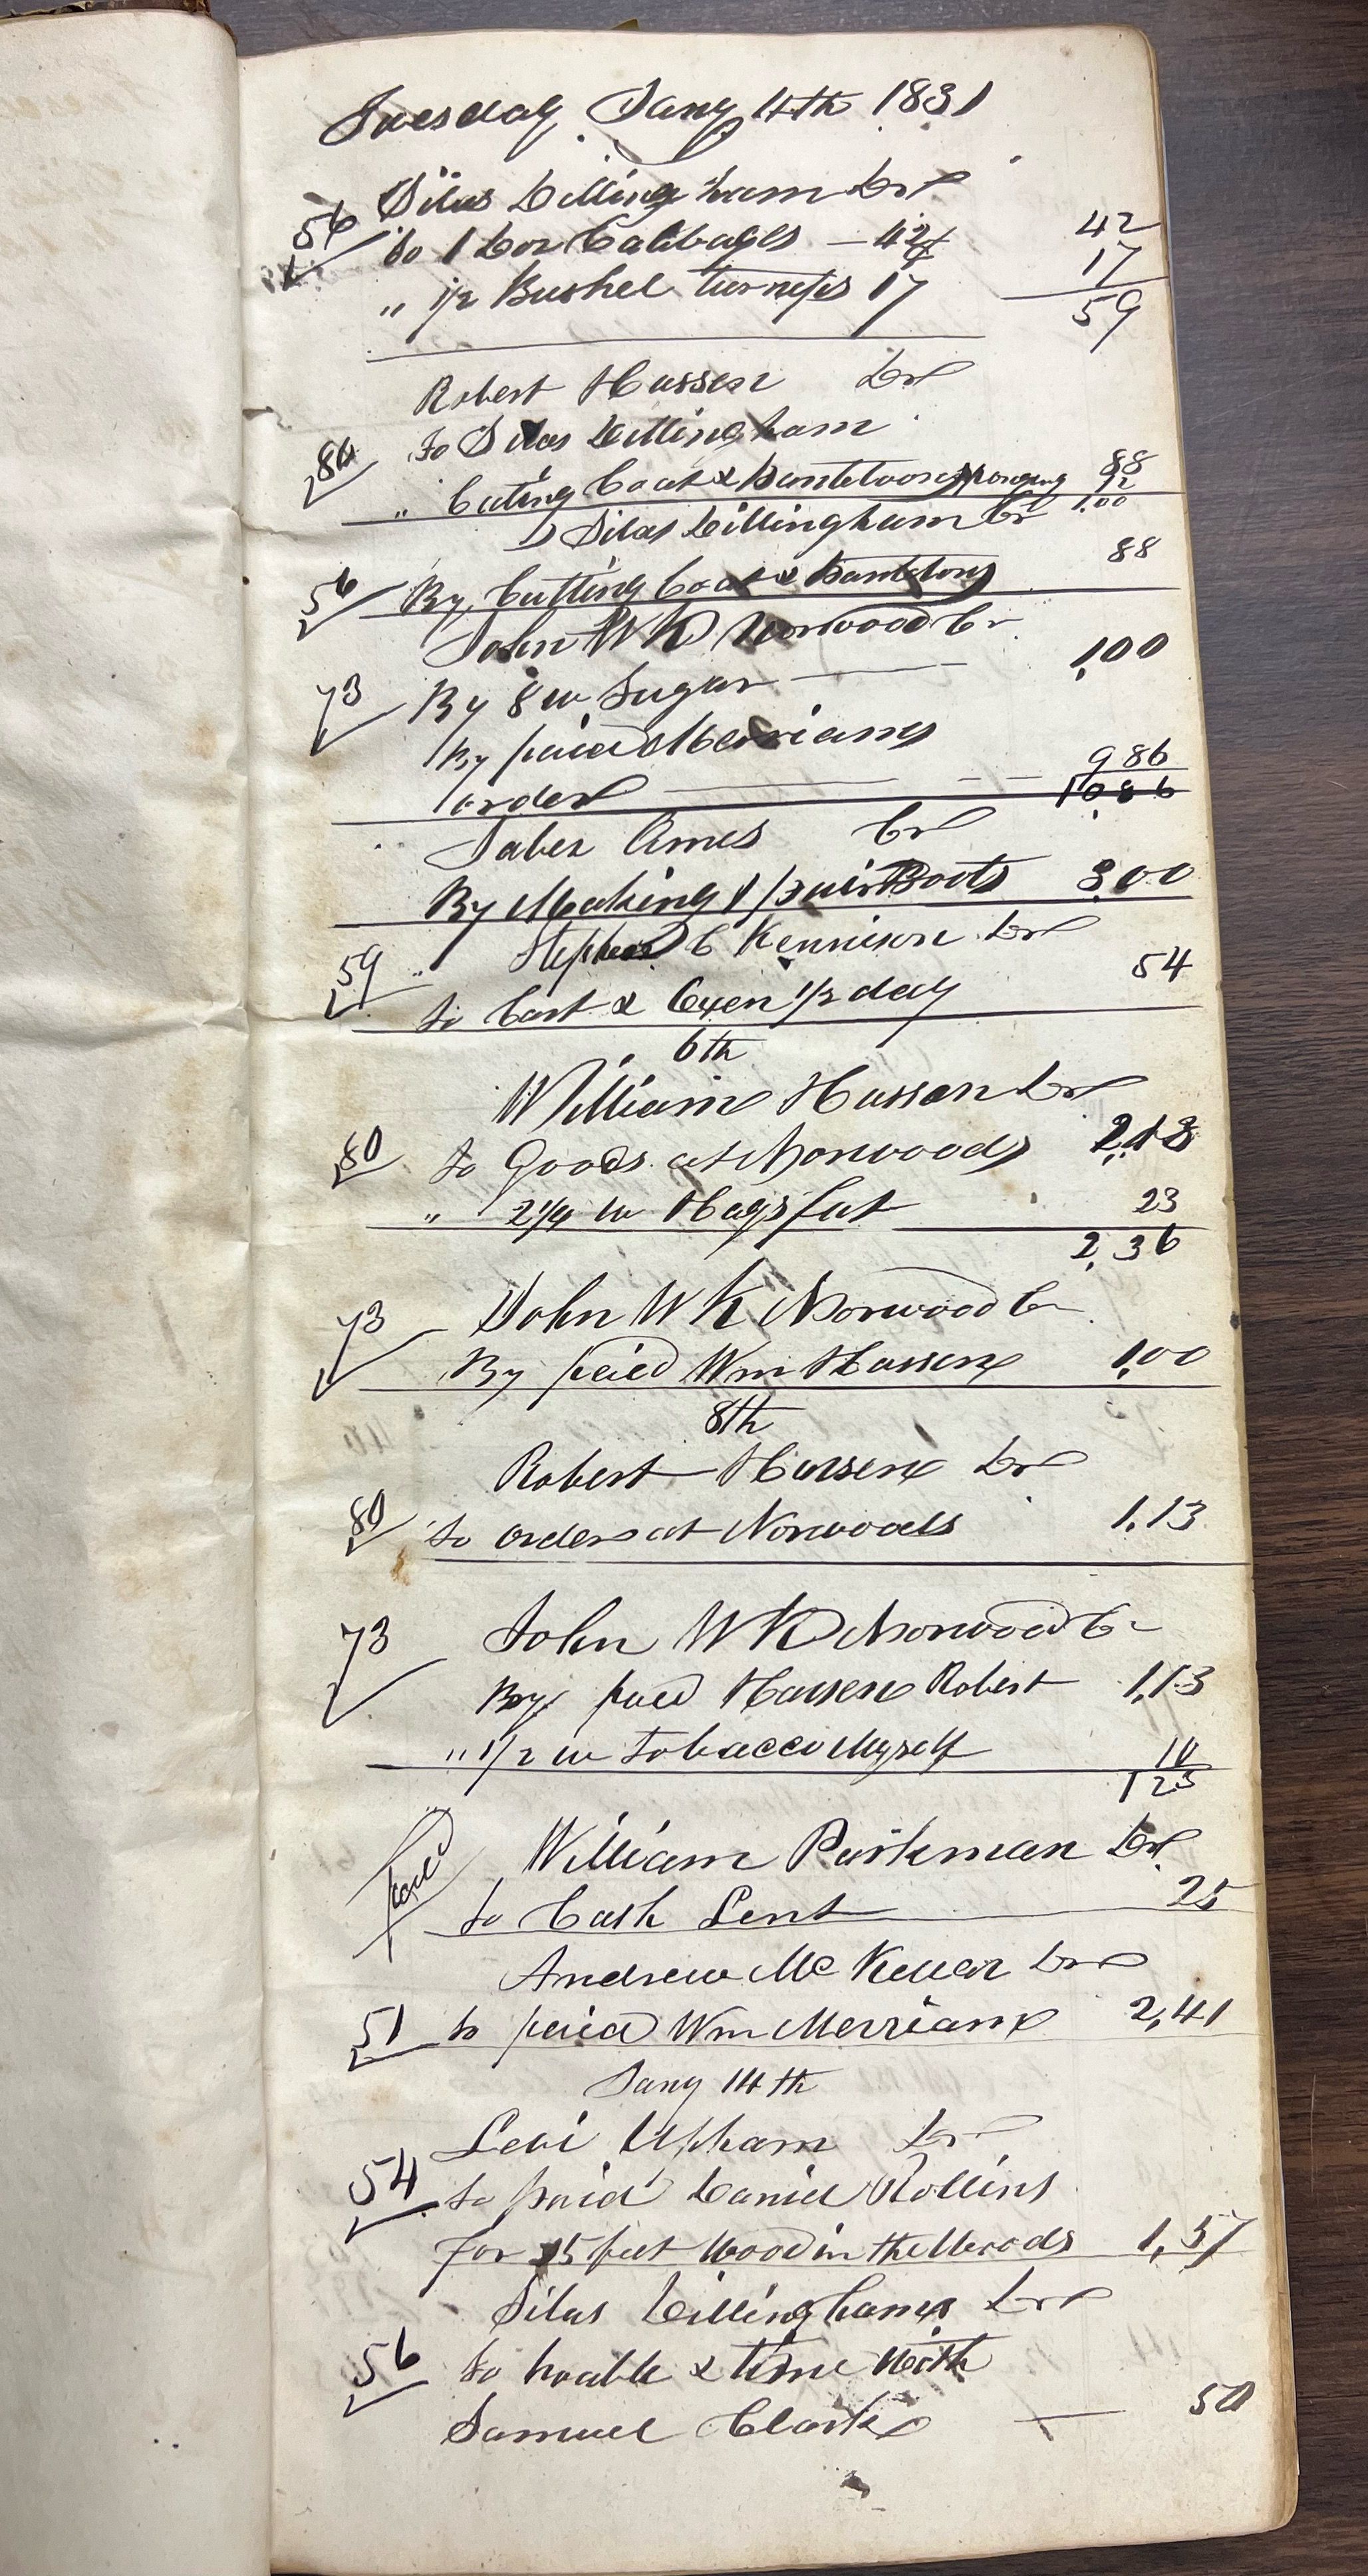 Tuesday Jany 4th 1831
Silas Dillingham Dr
56 to 1 Doz Cabbages — 42 42
" 1/2 Bushel turneps 17 17
59
Robert Hussen Dr
80 to Silas Dillingham
" Cuting Coat & Panteloons sponging 88
12
1.00
Silas Dillingham Cr
56 By Cutting Coat & Pantelons 88
John W K Norwood Cr
73 By 8 w Sugar 1,00
By paid Merriams
order 9 86
10.86
Jabez Ames Cr
By Making 1 pair Boots 3,00
Stephen C Kennison Dr
59 " to Cart & Oxen 1/2 day 54
6th
William Hussen Dr
80 to Goods at Norwoods 2,13
" 2 1/4 w Hogs fat 23
2,36
John W K Norwood Cr
73 By paied Wm Hussen 1,00
8th
Robert Hussen Dr
80 to orders at Norwoods 1,13
John W K Norwood Cr
73 By paied Hussen Robert 1,13
" 1/2 w Tobacco Myself 10
1 23
William Parkman Dr
paid to Cash Lent 25
Andrew Mc Kellar Dr
51 to paied Wm Merriam 2,41
Jany 14th
Levi Upham Dr
54 to paid Daniel Rollins
for 5 feet Wood in the Woods 1,57
Silas Dillingham Dr
56 to trouble & time With
Samuel Clark — 50